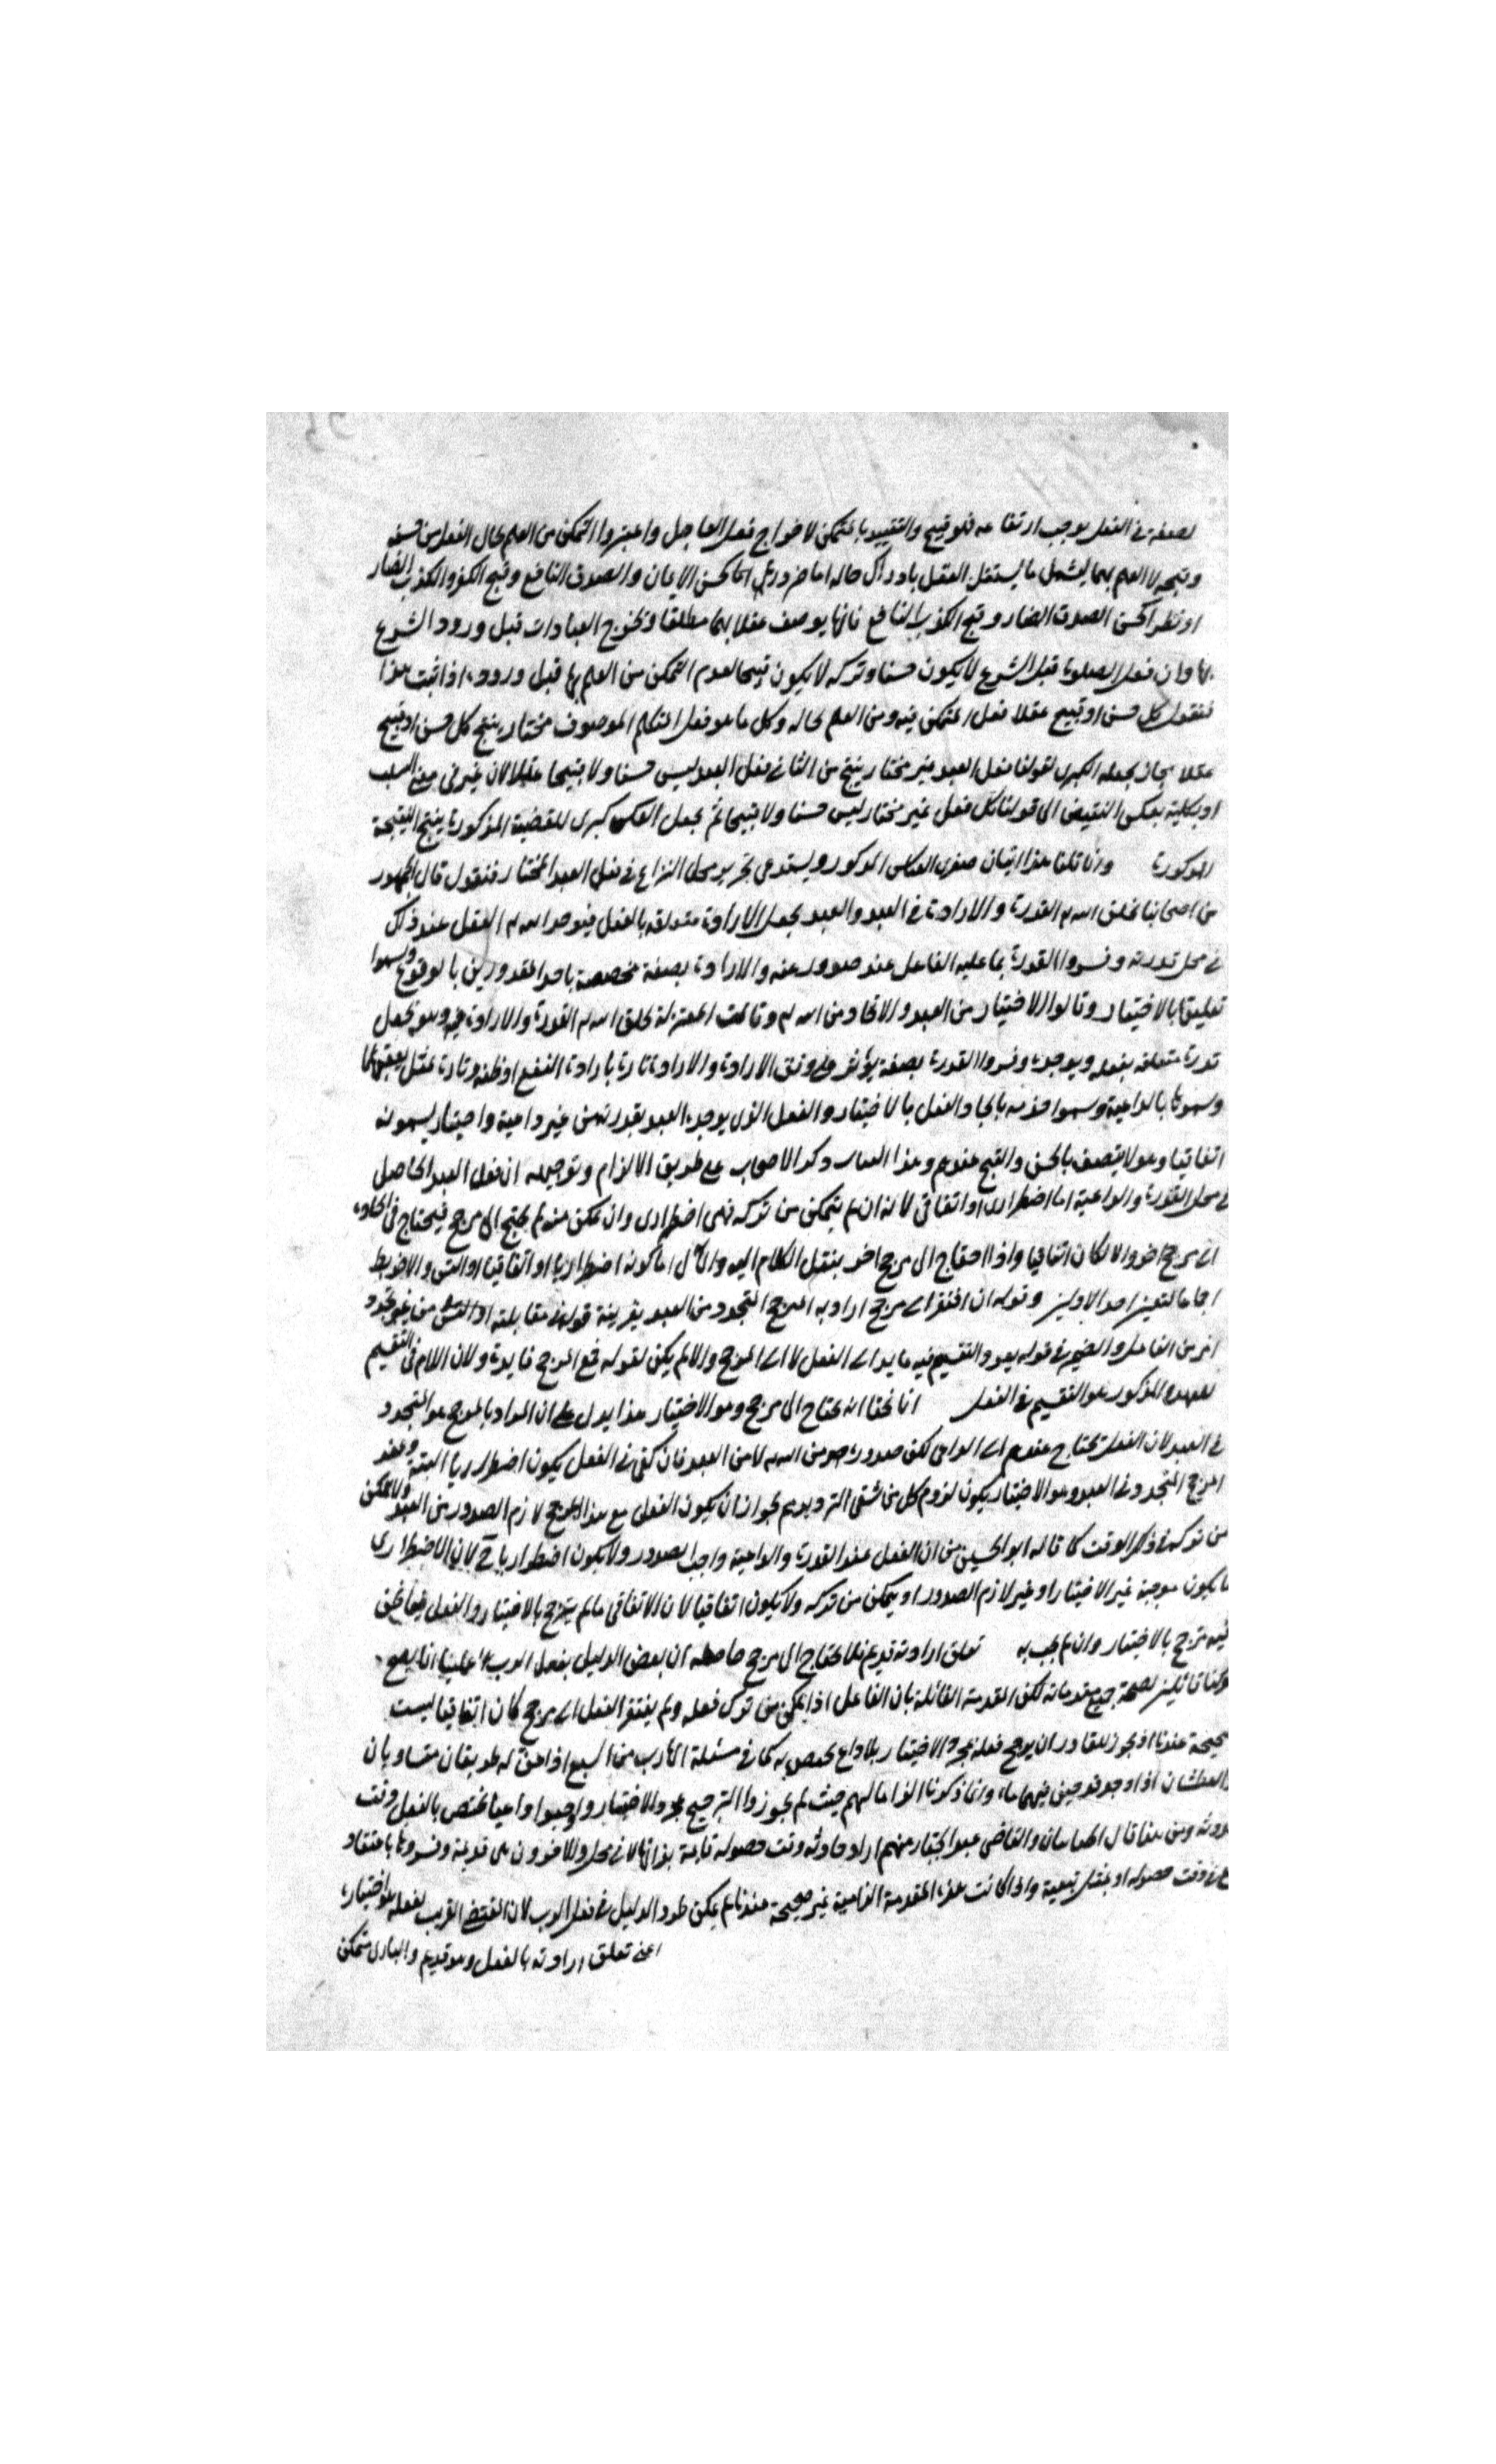 لصفة في الفعل يوجب ارتفاعه فهو قبيح والتقييد بالمتمكن لاخراج فعل العاجل واعتبروا التمكن من العلم بحال الفعل من حسنه
وقبحه لا العلم بهما ليشمل ما يستقل العقل بادراك حاله اما ضرورة كحسن الايمان والصدق النافع وقبح الكفر والكذب الضار
او نظرا كحسن الصدق الضار وقبح الكذب النافع فانها يوصف عقلا بهما مطلقا وتخرج العبادات قبل ورود الشرع
وان فعل الصلوة قبل الشرع لا يكون حسنا وتركه لا يكون قبيحا لعدم التمكن من العلم بها قبل وروده اذا ثبت هذا
فنقول كل حسن او قبيح عقلا فعل المتمكن فيه ومن العلم بحاله وكل ما هو فعل المتكلم الموصوف مختار ينتج كل حسن او قبيح
عقلا مختار بجعله الكبرى لقولنا فعل العبد غير مختار ينتج من الثاني فعل العبد ليس حسنا ولا قبيحا عقلا لان غير في معنى السلب
او بكلية بعكس النقيض الى قولنا كل فعل غير مختار ليس حسنا ولا قبيحا ثم بجعل العكس كبرى للقضية المذكورة ينتج النتيجة
المذكورة وانا قلنا هذا اثبات صغرى القياس المذكور ويستدعى تحرير محل النزاع في فعل العبد المختار فنقول قال الجمهور
من اصحابنا بخلق الله القدرة والارادة في العبد والعبد بجعل الارادة متعلقه بالفعل فيوجد الله الفعل عند ذلك
في محل قدرته وفسروا القدرة بما عليه الفاعل عند صدور عنه والارادة بصفة مخصصة باحد المقدورين بالوقوع وسموا
تعليقها بالاختيار وقالوا الاختيار من العبد والايجاد من الله وقالت المعتزلة بخلق الله القدرة والارادة فيه وهو يجعل
قدرة متعلقه بفعله ويوجده وفسروا القدرة بصفة يؤثر في وفق الارادة والارادة تارة بارادة النفع او ظنه وتارة بميل يعقبهما
وسموها بالداعية وسموا هذه بايجاد الفعل بالاختيار والفعل الذي يوجده العبد بقدرته من غير داعية واختيار يسمونه
اتفاقيا وهو لا يتصف بالحسن والقبح عندهم وهذا القياس ذكر الاصحاب على طريق الالزام وتوجيهه ان فعل العبد الحاصل
في محل القدرة والداعية اما اضطراري او اتفاقى لانه ان لم يتمكن من تركه فهو اضطرارى وان تمكن منه لم يحتج الى مرجح فيحتاج في ايجاده
الى مرجح اخر والا لكان اتفاقيا واذا احتاج الى مرجح اخر ينقل الكلام اليه والمآل اما كونه اضطراريا او اتفاقيا او التس والاخير بط
اجماعا لتعين احد الاولين وقوله ان افتقر الى مرجح اراد به المرجح المتجدد من العبد بقرينة قوله في مقابلته او التس من غير تجدد
امر من الفاعل والضمير في قوله يعود التقسيم فيه عايد الى الفعل لا الى المرجح والا لم يكن لقوله فمع المرجح فايدة ولان اللام في التقسيم
للعهد والمذكور هو التقسيم في الفعل انا نختار انه يحتاج الى مرجح وهو الاختيار هذا يدل على ان المراد بالمرجح هو المتجدد
في العبد لان الفعل يحتاج عندهم الى الداعى لكن صدوره من الله لا من العبد فان كفى في الفعل يكون اضطراريا البتة وعند
المرجح المتجدد في العبد وهو الاختيار يكون لزوم كل من شقى الترديد لجواز ان يكون الفعل مع هذا المرجح لازم الصدور من العبد ولا يتمكن
من تركه في ذلك الوقت كما قاله ابو الحسين من ان الفعل عند القدرة والداعية واجب الصدور ولا يكون اضطراريا ح لان الاضطرارى
ما يكون موجبه غير الاختيار او غير لازم الصدور او يتمكن من تركه ولا يكون اتفاقيا لان الاتفاقى ما لم يترجح بالاختيار والفعل فيما نحن
فيه مترجح بالاختيار وان لم يجب به تعلق ارادته قديم فلا يحتاج الى مرجح حاصله ان بعض الدليل بفعل الرب علينا انا يصح
لو كنا قائلين بصحة جميع مقدماته لكن المقدمة القائلة بان الفاعل اذا تمكن من ترك فعله ولم يفتقر الفعل الى مرجح كان اتفاقيا ليست
صحيحة عندنا اذ يجوز للقادر ان يرجح فعله بمجرد الاختيار بلا داع يختص به كما في مسئلة الهارب من السبع اذا عن له طريقان متساويان
والعطشان اذا وجد قدحين فيهما ماء وانما ذكرنا الزاما لهم حيث لم يجوزوا الترجيح بمجرد الاختيار واوجبوا داعيا يختص بالفعل وقت
حدوثه ومن هنا قال الجبائيان والقاضى عبد الجبار منهم ارادة حادثه وقت حصوله قايمة بذاتها لا في محل والاخرون على قديمة وفسروها باعتقاد
في وقت حصوله او بميل يتبعه واذا كانت هذه المقدمة الالزامية غير صحيحة عندنا لم يمكن طرد الدليل في فعل الرب لان المقتضى القريب لفعله هو اختياره
اعنى تعلق ارادته بالفعل وهو قديم والبارى متمكن